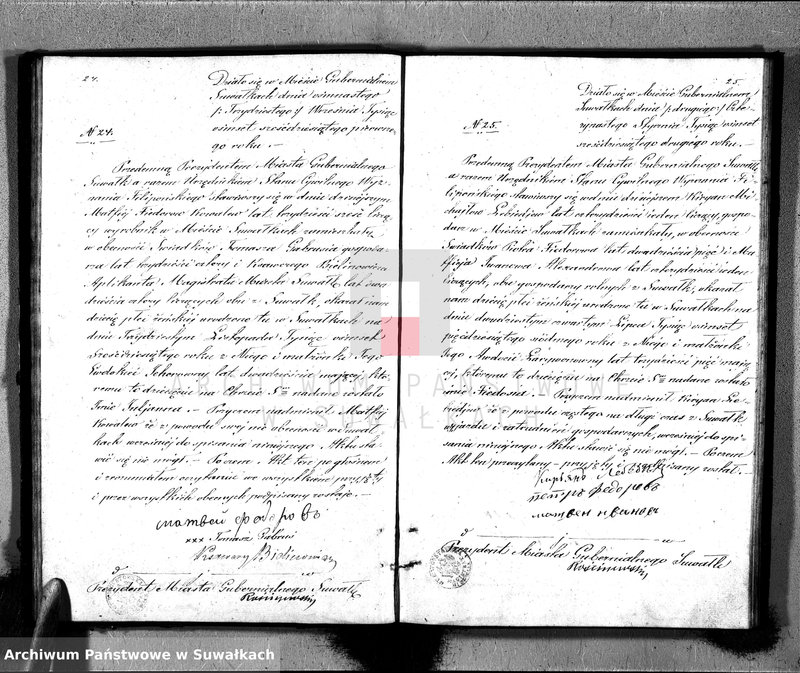 24.
Działo się w Mieście Gubernialnem
Suwałkach dnia ósmnastego
/: Trzydziestego :/ Września Tysiąc
ośmset sześćdziesiątego pierwsze-
go roku. —
№ 24.
Przedemną Prezydentem Miasta Gubernialnego
Suwałk a razem Urzędnikiem Stanu Cywilnego Wyz-
nania Filipońskiego Stawiwszy się w dniu dzisiejszym
Matfiej Fiedorow Kowalew lat trzydzieści sześć liczą-
cy wyrobnik w Mieście Suwałkach zamieszkały
w obecności Świadków Tomasza Gabrusia gospoda-
rza lat trzydzieści cztery i Xawerego Bielinowicza
Aplikanta Magistratu Miasta Suwałk lat dwa-
dzieścia cztery liczących obu z Suwałk, okazał nam
dziecię płci żeńskiej urodzone tu w Suwałkach na
dniu Trzydziestym Listopada Tysiąc ośmset
sześćdziesiątego roku z Niego i małżonki Jego
lat dwadzieścia mającej, któ-
remu to dziecięciu na Chrzcie Stm nadane zostało
Imie Juljanna. — Przyczem nadmienił Matfiej
Kowalew iż z powodu swej nie obecności w Suwał-
kach wcześniej do spisania niniejszego Aktu sta-
wić się nie mógł. — Poczem Akt ten po głośnem
i zrozumiałem onychanie we wszystkiem przyjęty
i przez wszystkich obecnych podpisany zostaje. —
матвей федоровъ
xxx Tomasz Gabruś
Xawery Bielinowicz
Prezydent Miasta Gubernialnego Suwałk
25.
Działo się w Mieście Gubernialnem
Suwałkach dnia /: drugiego :/ Czte-
rynastego Stycznia Tysiąc ośmset
sześćdziesiątego drugiego roku. —
№ 25.
Przedemną Prezydentem Miasta Gubernialnego Suwałk
a razem Urzędnikiem Stanu Cywilnego Wyznania Fi-
lipońskiego stawiwszy się w dniu dzisiejszym Kiryan Mi-
chajłow Lebiediew lat czterdzieści jeden liczący gospo-
darz w Mieście Suwałkach zamieszkały, w obecności
Świadków Piotra Fiedorowa lat dwadzieścia pięć i Ma-
tfieja Iwanowa Alexandrowa lat czterdzieści jeden
liczących, obu gospodarzy rolnych z Suwałk, okazał
nam dziecię płci żeńskiej urodzone tu w Suwałkach na
dniu dwudziestym czwartym Lipca Tysiąc ośmset
pięćdziesiątego siódmego roku z Niego i małżonki
Jego lat trzydzieści pięć mają-
cej, któremu to dziecięciu na Chrzcie Stm nadane zostało
Imie Fiedosia. — Przyczem nadmienił Kiryan Le-
biediew iż z powodu częstego na długi czas z Suwałk
wyjazdu i zatrudnień gospodarczych, wcześniej do spi-
sania niniejszego Aktu stawić się nie mógł. — Poczem
Akt ten przeczytany — przyjęty i podpisany został. —
Кирьянъ Лебедевъ
петръ федоровъ
матвей ивановъ
Prezydent Miasta Gubernialnego Suwałk
ARCHIWUM PAŃSTWOWE
W SUWAŁKACH
Archiwum Państwowe w Suwałkach